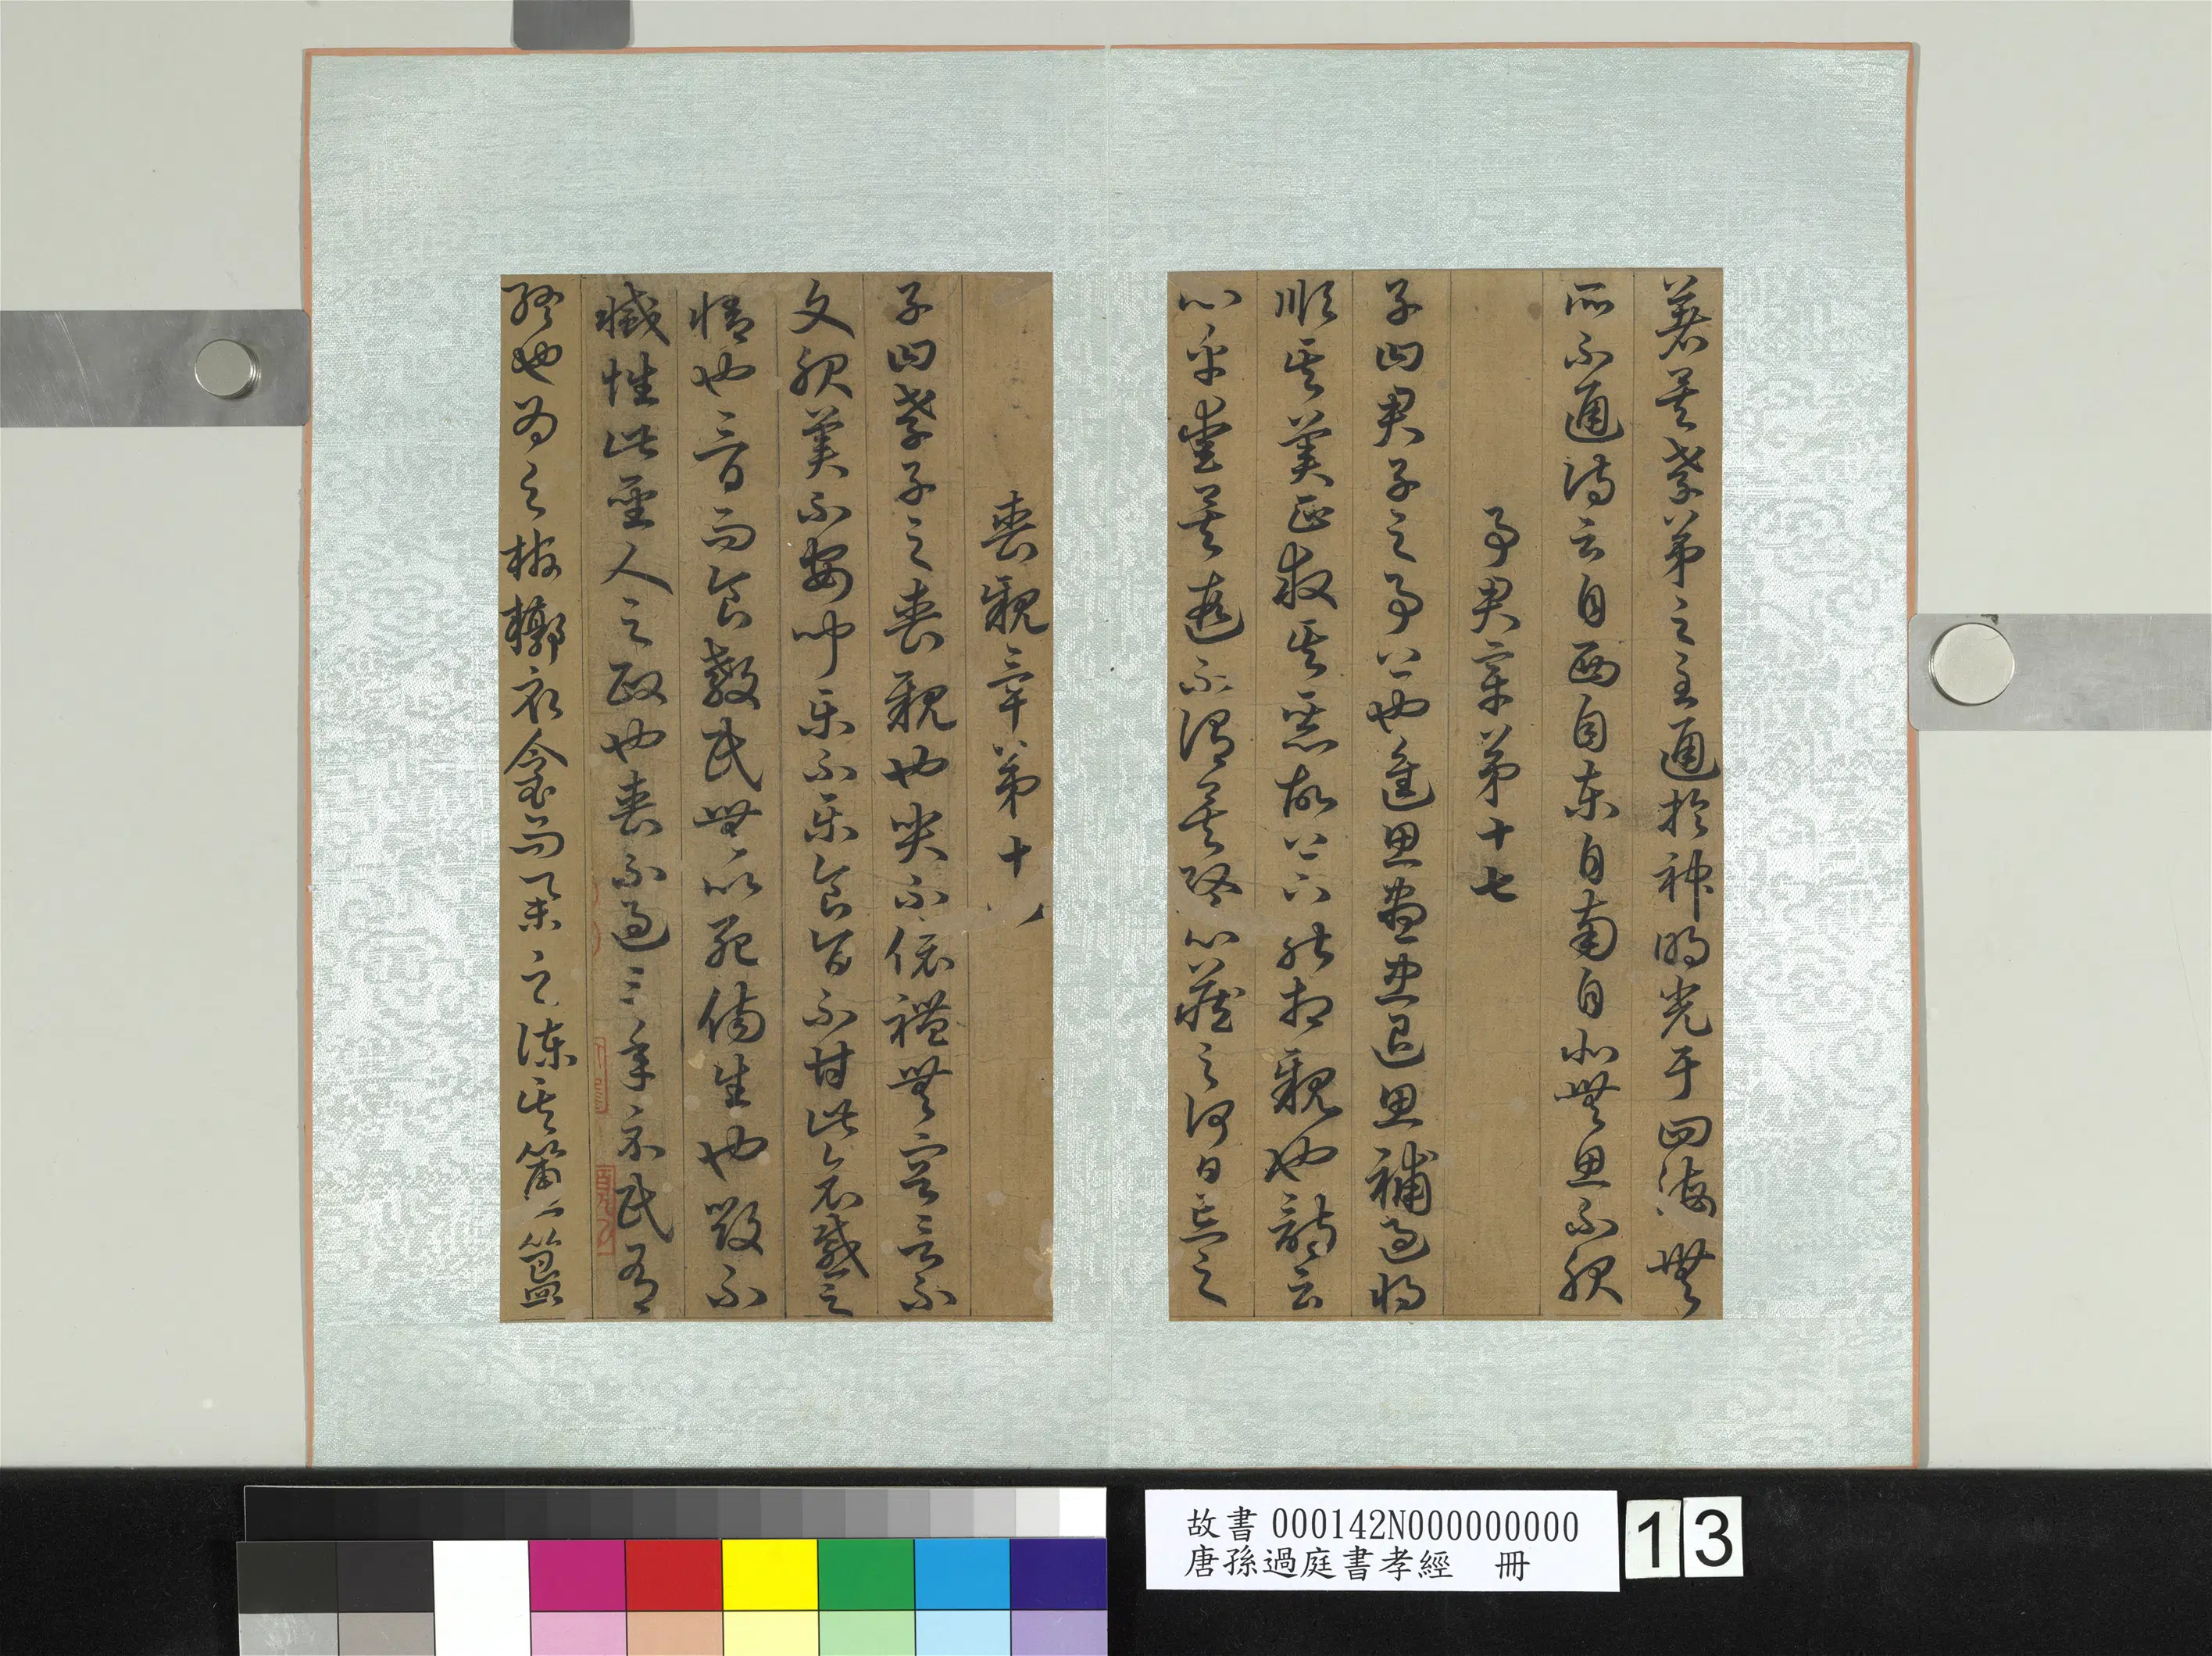 著矣孝弟之至通於神明光于四海無
所不通詩云自西自東自南自北無思不服
事君章第十七
子曰君子之事上也進思盡忠退思補過將
順其美正救其惡故上下能相親也詩云
心乎愛矣遐不謂矣終心藏之何日忘之
喪親章第十八
子曰孝子之喪親也哭不偯禮無容言不
文服美不安聞樂不樂食旨不甘此哀慼之
情也三日而食教民無以死傷生也毀不
滅性此聖人之政也喪不過三年示民有
終也為之棺槨衣衾而舉之陳其簠簋
故書000142N000000000
唐孫過庭書孝經　冊
13